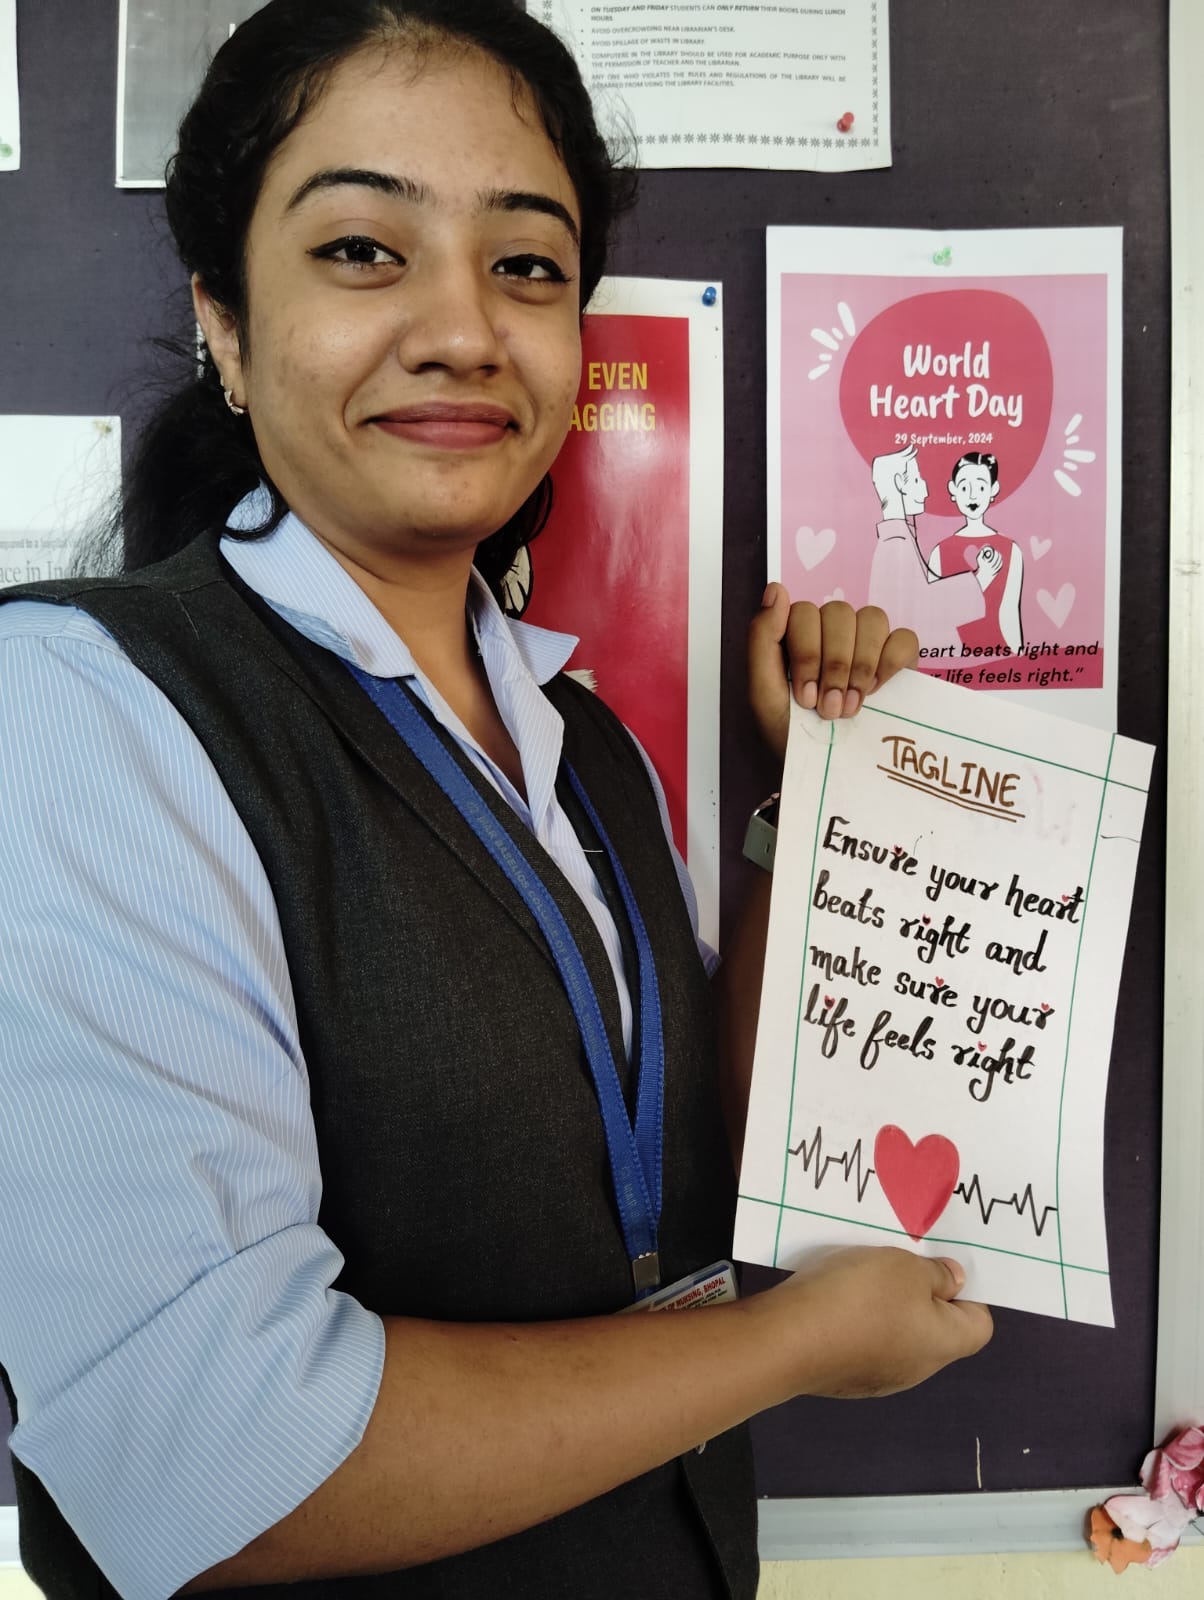 ON TUESDAY AND FRIDAY STUDENTS CAN ONLY RETURN THEIR BOOKS DURING LUNCH
HOURS.
AVOID OVERCROWDING NEAR LIBRARIAN'S DESK.
AVOID SPILLAGE OF WASTE IN LIBRARY.
COMPUTERS IN THE LIBRARY SHOULD BE USED FOR ACADEMIC PURPOSE ONLY WITH
THE PERMISSION OF TEACHER AND THE LIBRARIAN.
ANY ONE WHO VIOLATES THE RULES AND REGULATIONS OF THE LIBRARY WILL BE
DEBARRED FROM USING THE LIBRARY FACILITIES.
EVEN
AGGING
World
Heart Day
29 September, 2024
eart beats right and
life feels right."
TAGLINE
Ensure your heart
beats right and
make sure your
life feels right
MAR BASELIOS COLLEGE OF NURSING
OF NURSING, BHOPAL
ace in In